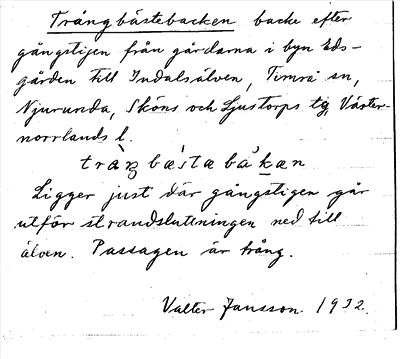 Trångbästebacken backe efter
gångstigen från gårdarna i byn Eds-
gården till Indalsälven, Timrå sn,
Njurunda, Sköns och Ljustorps tg, Väster-
norrlands l.
tràŋ bæ'stæ bå`kæn
Ligger just där gångstigen går
utför strandsluttningen ned till
älven. Passagen är trång.
Valter Jansson. 1932.